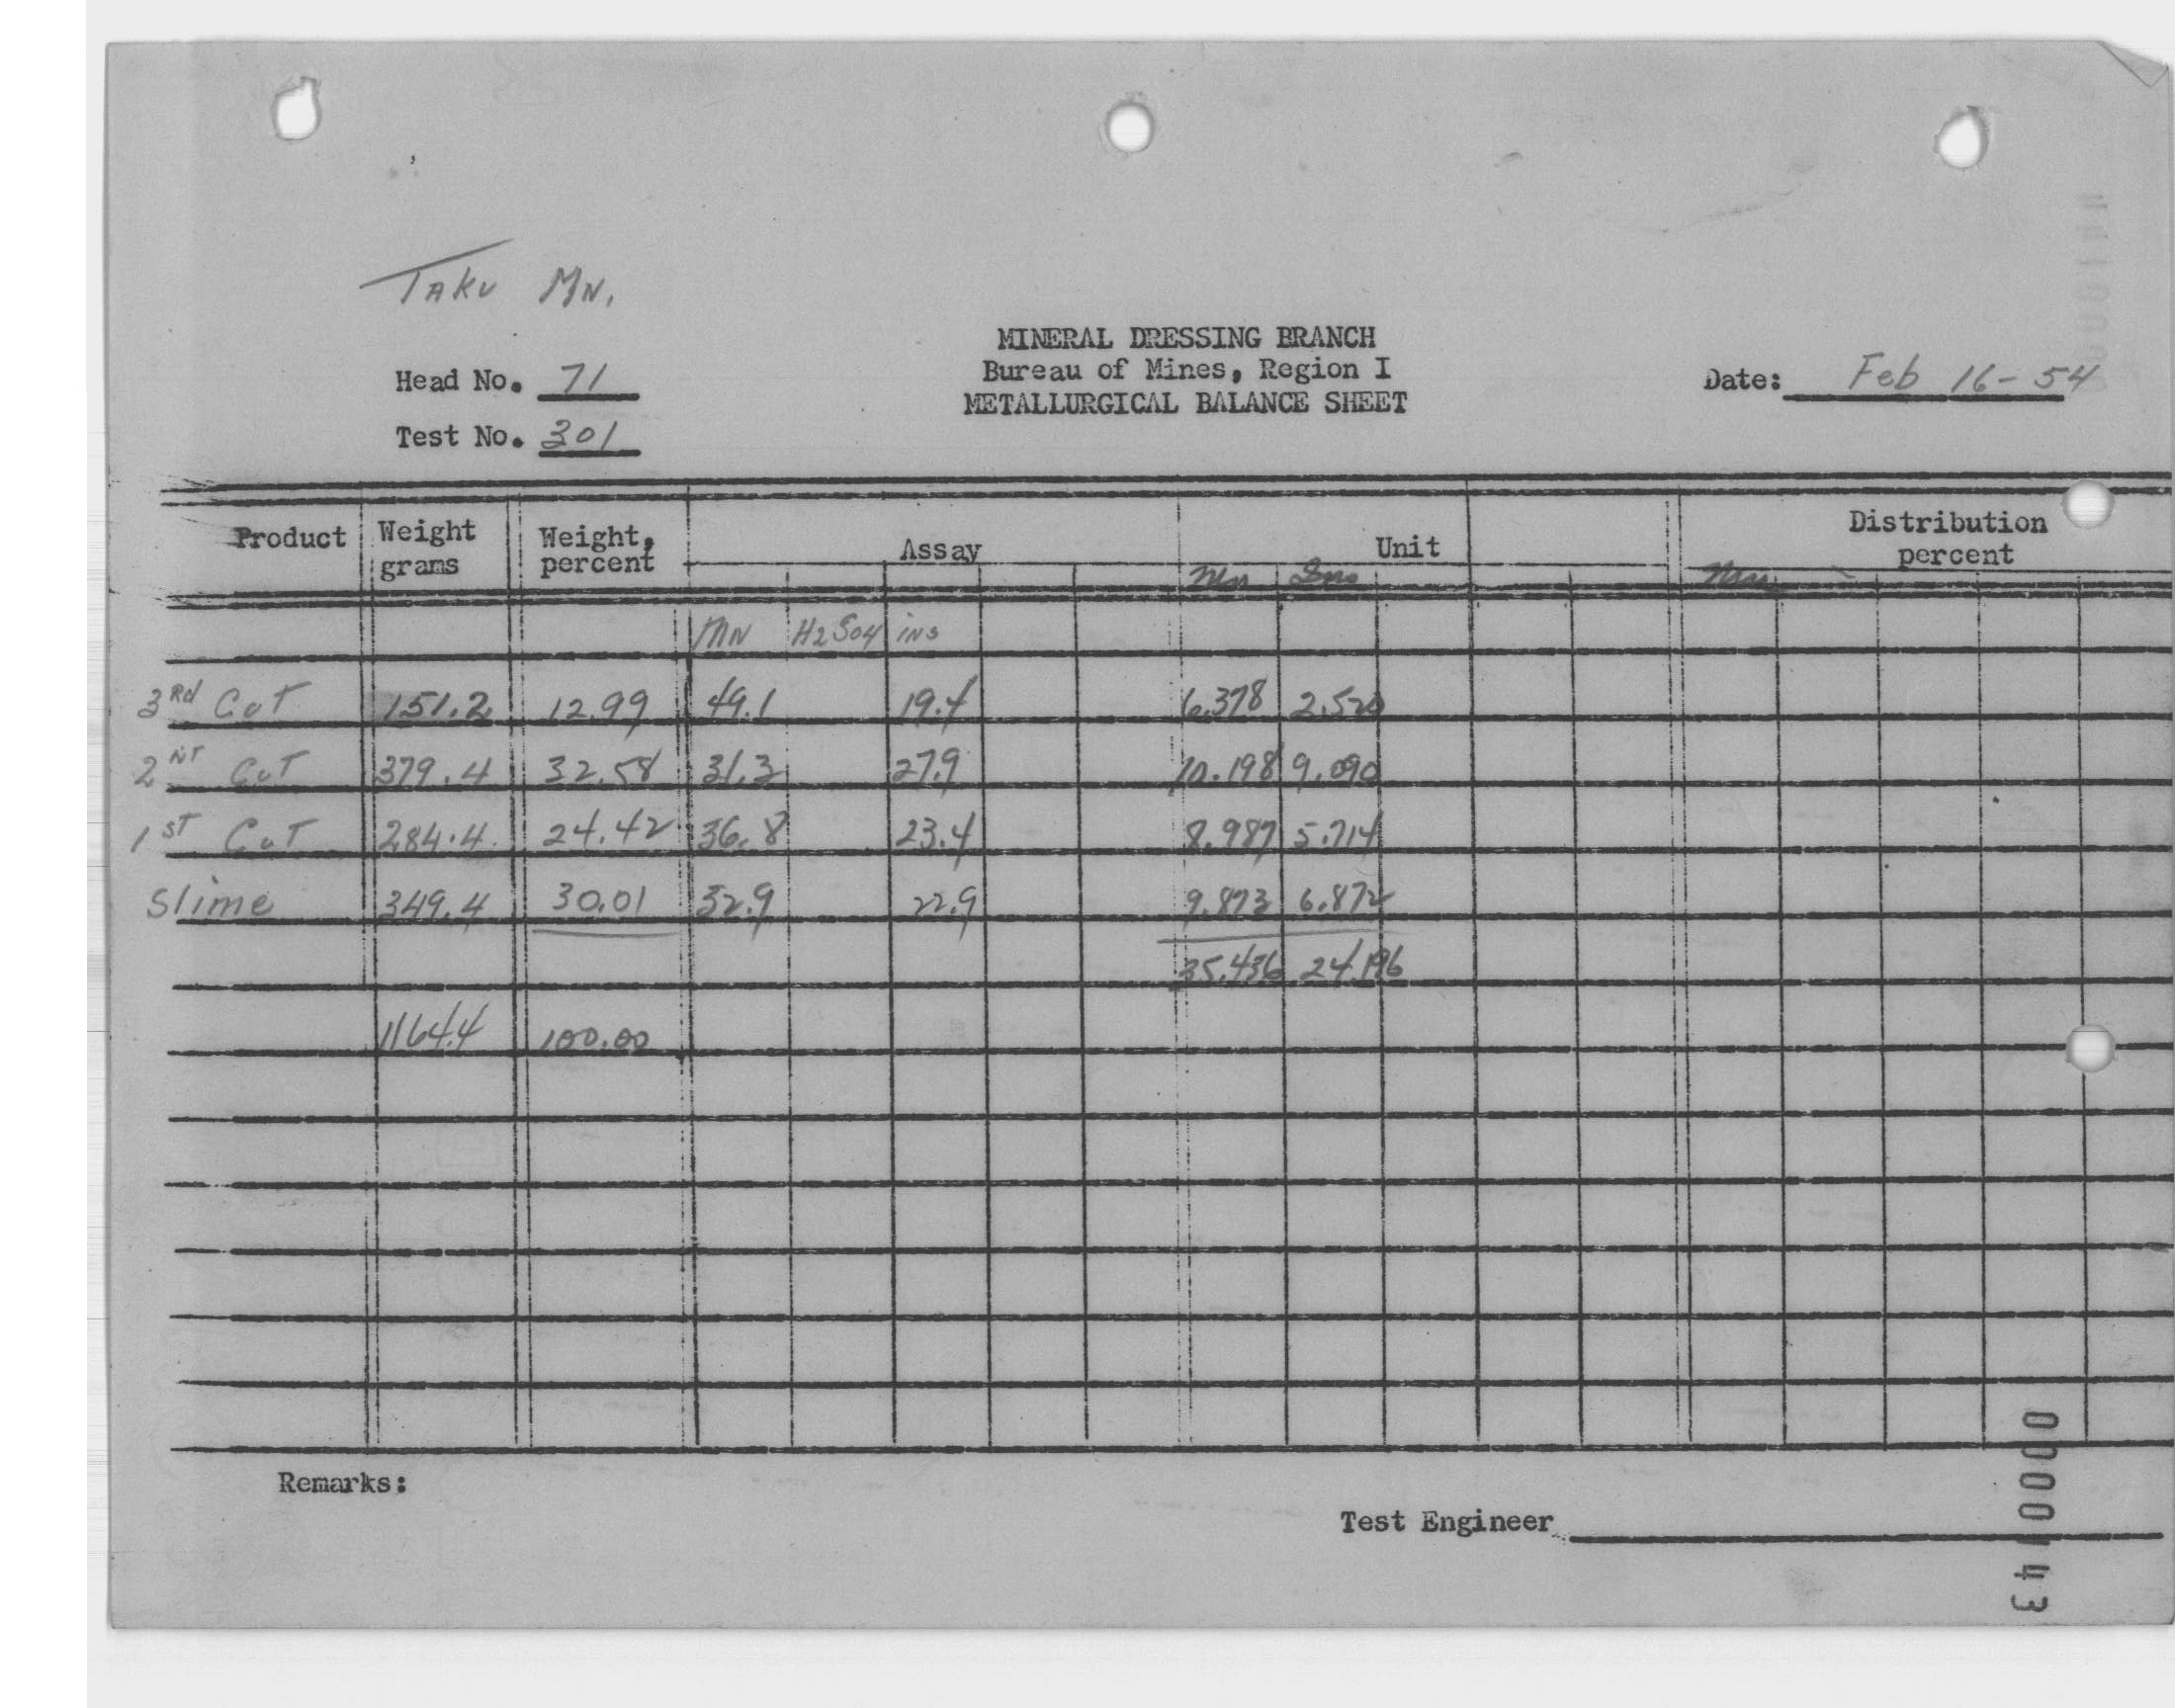 TAKU MN.
MINERAL DRESSING BRANCH
Head No. 71 Bureau of Mines, Region I Date: Feb 16-54
METALLURGICAL BALANCE SHEET
Test No. 301
Product Weight grams Weight, percent Assay Unit Distribution percent
Mn Ins Mn
MN H2SO4 ins
3RD CUT 151.2 12.99 49.1 19.4 6.378 2.520
2NT CUT 379.4 32.58 31.3 27.9 10.198 9.090
1ST CUT 284.4 24.42 36.8 23.4 8.987 5.714
Slime 349.4 30.01 32.9 22.9 9.873 6.872
35.436 24.196
1164.4 100.00
Remarks:
Test Engineer
0000143